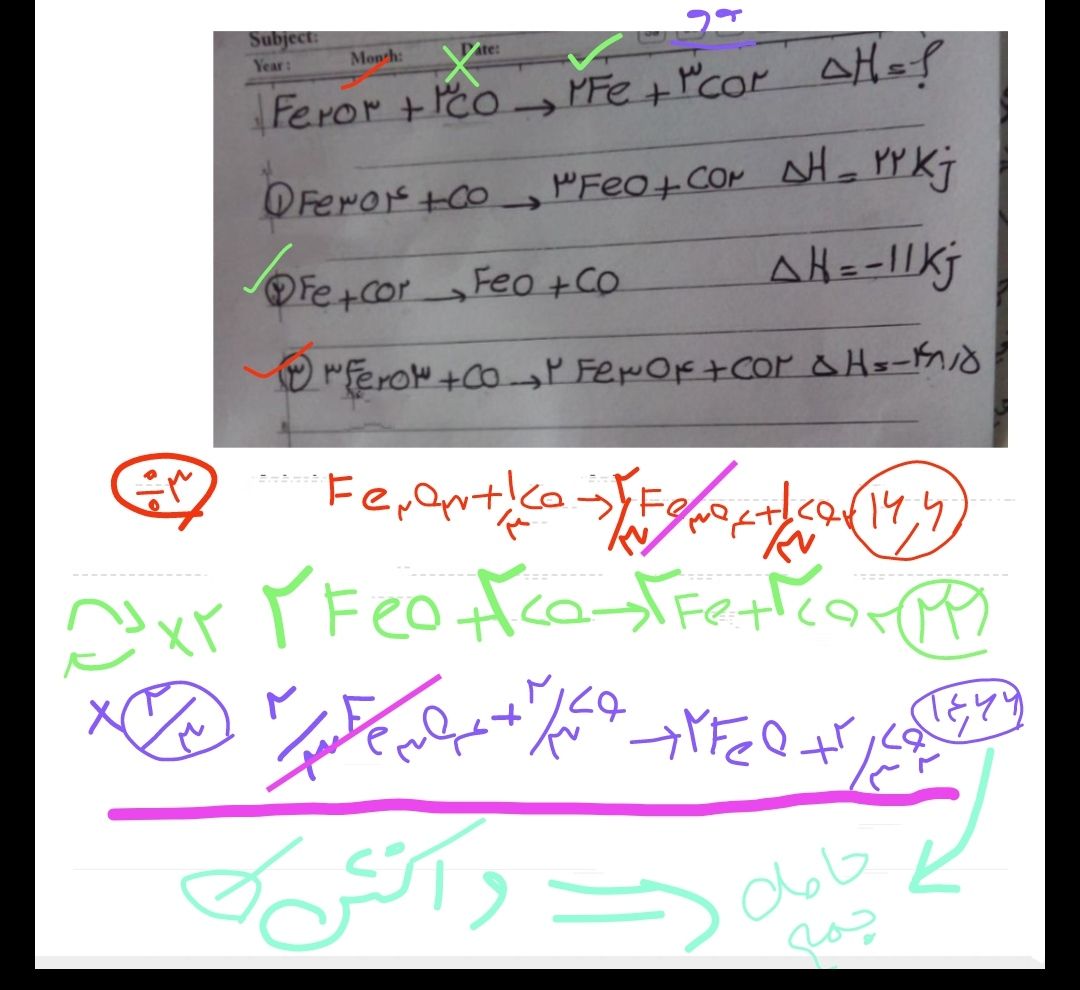 ۹۳
Subject:
Year: Month: Date:
Fe۲O۳ + ۳CO → ۲Fe + ۳CO۲ ΔH = ?
① Fe۳O۴ + CO → ۳FeO + CO۲ ΔH = ۲۲ Kj
② Fe + CO۲ → FeO + CO ΔH = -۱۱ Kj
③ ۳Fe۲O۳ + CO → ۲Fe۳O۴ + CO۲ ΔH = -۴۸/۵
÷۳ Fe۲O۳ + ۱/۳CO → ۲/۳Fe۳O۴ + ۱/۳CO۲ ۱۶,۶
×۲ ۲FeO + ۲CO → ۲Fe + ۲CO۲ ۲۲
×۲/۳ ۲/۳Fe۳O۴ + ۲/۳CO → ۲FeO + ۲/۳CO۲ ۱۴,۶۶
باهم
جمع
واکنش